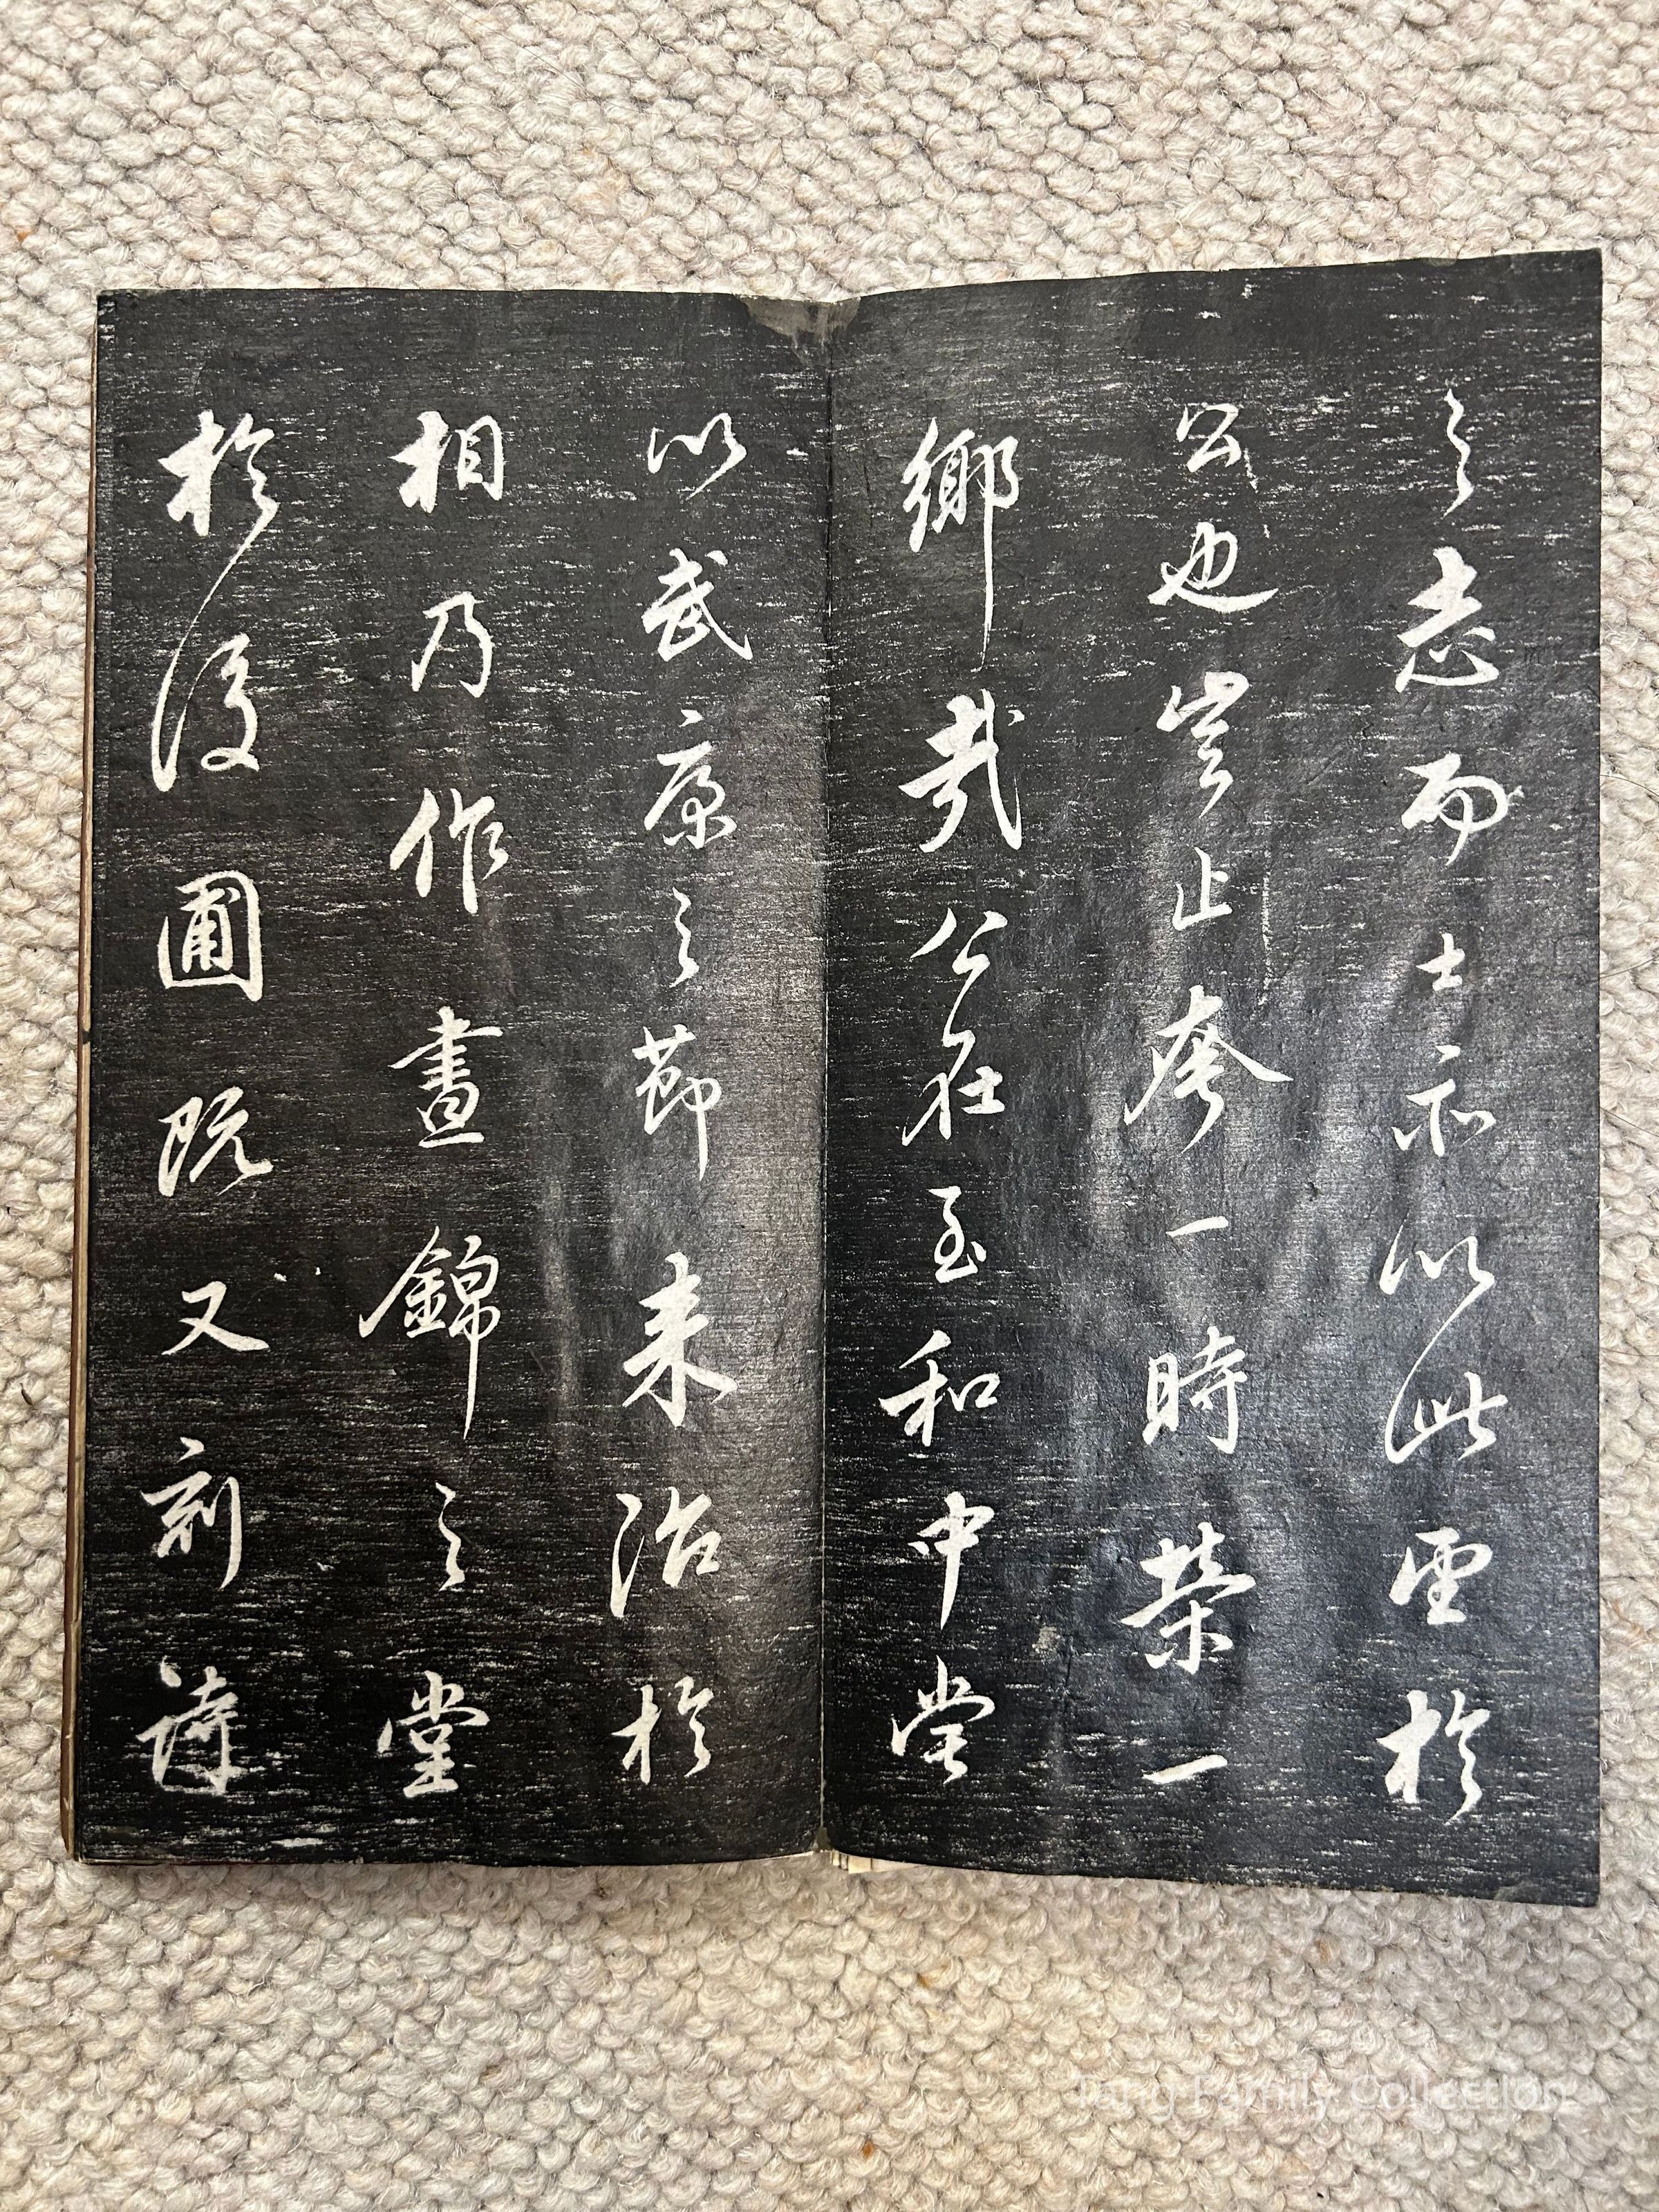 之志而士亦以此望於
公也豈止夸一時榮一
鄉哉公在至和中嘗
以武康之節来治於
相乃作晝錦之堂
於後圃既又刻詩
Tang Family Collection